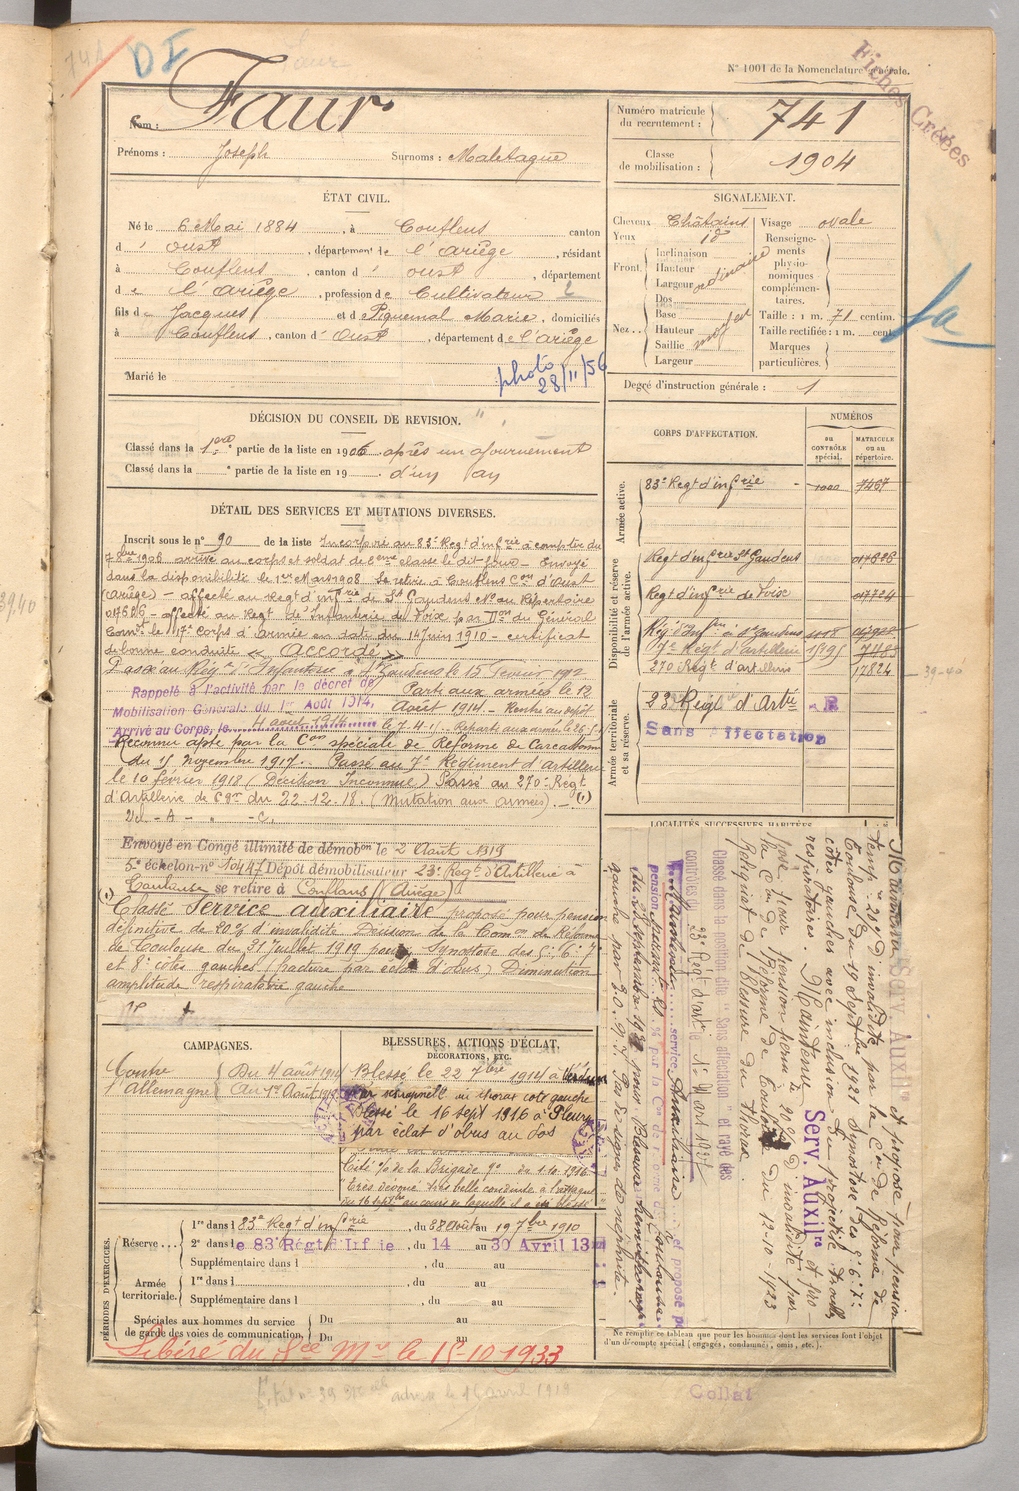 741
DI
Faur
N° 1001 de la Nomenclature générale.
Fiches Créées
Nom : Faur
Prénoms : Joseph Surnoms : Maletague
Numéro matricule du recrutement : 741
Classe de mobilisation : 1904
ÉTAT CIVIL.
Né le 6 Mai 1884, à Couflens canton
d' Oust, département de l'Ariège, résidant
à Couflens, canton d' Oust, département
de l'Ariège, profession de Cultivateur
fils de Jacques et de Piquemal Marie, domiciliés
à Couflens, canton d' Oust, département de l'Ariège
Marié le
photo
28/11/56
SIGNALEMENT.
Cheveux Châtains
Yeux id
Front. Inclinaison
Hauteur
Largeur
ordinaire
Nez. Dos
Base
Hauteur
Saillie
Largeur
moyen
Visage ovale
Renseignements physionomiques complémentaires.
Taille : 1 m. 71 centim.
Taille rectifiée : 1 m. cent.
Marques particulières.
Degré d'instruction générale : 1
DÉCISION DU CONSEIL DE REVISION.
Classé dans la 1ere partie de la liste en 1906 après un ajournement
Classé dans la e partie de la liste en 19 d'un an
CORPS D'AFFECTATION.
NUMÉROS
au CONTRÔLE spécial.
MATRICULE ou au répertoire.
Armée active.
83e Regt d'infrie 7467
Disponibilité et réserve de l'armée active.
Regt d'infrie St Gaudens 017626
Regt d'infrie de Foix 017724
Régt d'Infrie à St Gaudens 1118
7e Regt d'artillerie 1595 7483
270 Regt d'artillerie 17824
39-40
Armée territoriale et sa réserve.
23 Régt d'Artie
Sans Affectation
DÉTAIL DES SERVICES ET MUTATIONS DIVERSES.
Inscrit sous le n° 90 de la liste Incorporé au 83e Regt d'infrie à compter du
7 8bre 1906 arrivé au corps et soldat de 2eme classe le dit jour - Envoyé
dans la disponibilité le 1er Mars 1908 Se retire à Couflens Con d'Oust
(Ariège) - affecté au Regt d'infrie de St Gaudens No au Répertoire
017626 - affecté au Regt de l'Infanterie de Foix par Don du Général
Comt le 17e Corps d'armée en date du 14 juin 1910 - certificat
de bonne conduite « Accordé »
Passé au Régt d'Infanterie à St Gaudens le 15 Fevrier 1912
Rappelé à l'activité par le décret de
Mobilisation Générale du 1er Août 1914,
Arrivé au Corps, le 4 août 1914
Parti aux armées le 12
Août 1914 - Rentré au dépôt
Reconnu apte par la Con spéciale de Réforme de Carcassonne
du 15 novembre 1917. Passé au 7e Régiment d'artillerie
le 10 février 1918 (Décision Inconnue) Passé au 270e Régt
d'Artillerie de Cgne du 22.12.18. (Mutation aux armées). (1)
Envoyé en Congé illimité de démobon le 2 Août 1919
5e échelon n° 10447 Dépôt démobilisateur 23e Regt d'Artillerie à
Toulouse se retire à Conflans (Ariège)
(1) Classé Service auxiliaire proposé pour pension
définitive de 20% d'invalidité Décision de la Comon de Réforme
de Toulouse du 31 Juillet 1919 pour Synostose des 5e 6e 7e
et 8e côtes gauches (fracture par éclat d'obus) Diminution
amplitude respiratoire gauche
LOCALITÉS SUCCESSIVES HABITÉES
Maintenu Serv. Auxilre et proposé pour pension
temp. 20% d'invalidité par la Con de Réforme de
Toulouse du 19 Septbre 1921 Synostose des 5e 6e 7e
côtes gauches avec inclusion d'un projectile troubles
respiratoires. Maintenu Serv. Auxilre et pro-
posé pour pension perm. 20% d'invalidité par
la Con de Réforme de Toulouse du 12-10-1923
Reliquat de blessure du thorax.
Classé dans la position dite "Sans affectation" et rayé des
contrôles du 23e Regt d'artie le Mars 1927
Maintenu service Auxiliaire et proposé p
pension permt 20 % par la Con de réforme de Toulouse
CAMPAGNES.
Contre l'Allemagne Du 4 août 1914
Au 1er Août 1919
BLESSURES, ACTIONS D'ÉCLAT, DÉCORATIONS, ETC.
Blessé le 22 7bre 1914 à Verdun
par schrapnell au thorax coté gauche
Blessé le 16 sept 1916 à Fleury
par éclat d'obus au dos
Cité % de la Brigade 90 du 1.10.1916
"Très dévoué très belle conduite à l'attaque
du 16 septbre au cours de laquelle il a été blessé
PÉRIODES D'EXERCICES.
Réserve 1re dans le 83e Regt d'infrie, du 8 Août au 19 7bre 1910
2e dans le 83e Régt d'Inf ie, du 14 au 30 Avril 13
Supplémentaire dans l, du au
Armée territoriale. 1re dans l, du au
Supplémentaire dans l, du au
Spéciales aux hommes du service de garde des voies de communication. Du au
Du au
Libéré du Sce Mre le 15-10-1933
Ne remplir ce tableau que pour les hommes dont les services font l'objet
d'un décompte spécial (engagés, condamnés, omis, etc.).
Collat